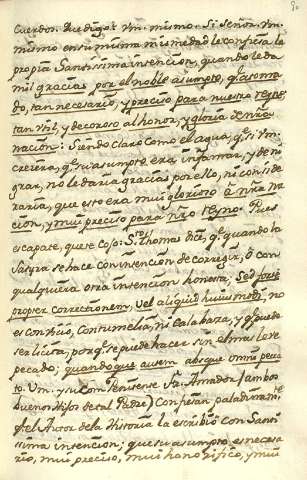 cuerdon. Que digo? Vm. mismo. Si Señor. Vm.
mismo en su misma mismedad le confiesa la
propia Santissima intencion, quando le da
mil gracias por el noble assumpto, q.e ha toma
do, tan necesario, y preciso para nuestro reyno,
tan util, y decoroso al honor, y gloria de n̄ra
nacion: siendo claro como el agua, q.e si Vm.
creiera, q.e su assumpto era infamar, y deni
grar, no le daria gracias por ello, ni conside
raria, que esto era mui glorioso á n̄ra na
cion, y mui preciso para n̄ro reyno. Pues
escapate, que te cojo: S.to Thomas dice, q.e quando la
Satyra se hace con intencion de corregir, ó con
qualquiera otra intencion honesta, Sed forte
propter correctionem, vel aliquid huiusmodi, no
es convicio, contumelia, ni calabaza, y q.e puede
ser licita, porq.e se puede hacer sin el mas leve
pecado; quandoque autem absque omni pecca
to. Vm. y su Compenitense Fr. Amador (ambos
buenos Hijos de tal Padre) confiesan paladinam.te
q.e el Autor de la Historia la escribió con Santi
ssima intencion; que su assumpto es necesa
rio, mui preciso, mui honorifico, y mui